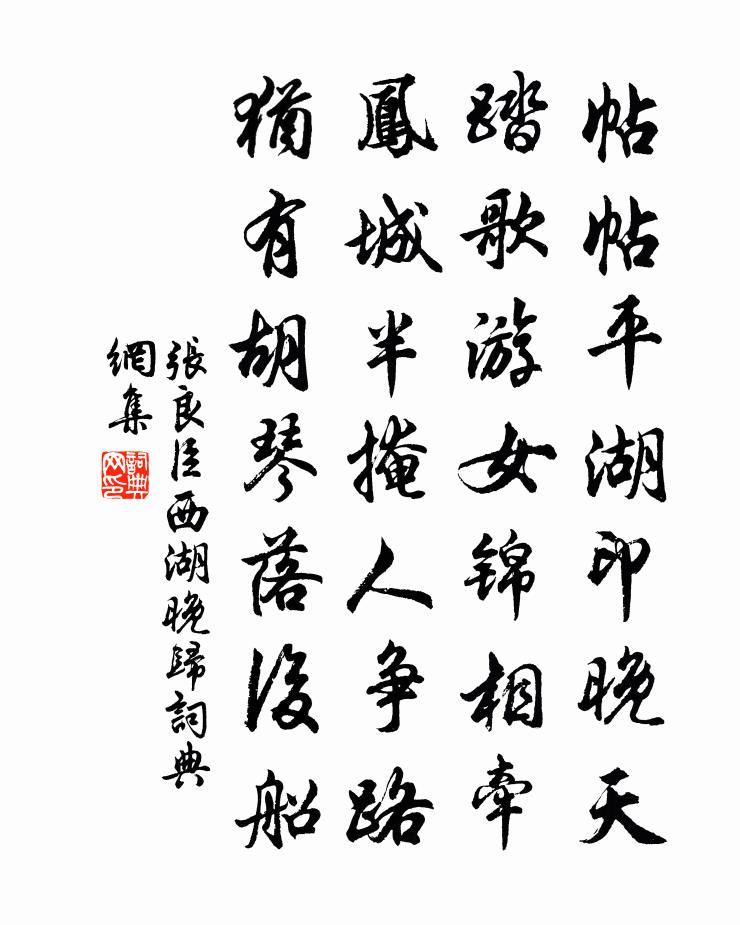 帖帖平湖印晚天
踏歌游女锦相牵
鳳城半掩人争路
猶有胡琴落後船
張良臣西湖晚歸詞典
網集
詞典
网印